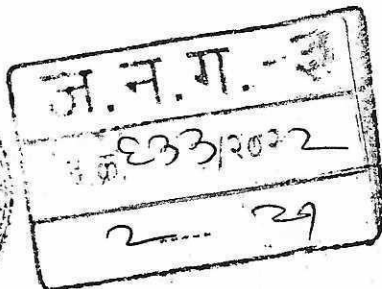 ज.न.ग. -
क्र. ६३३/२०२२
२ ..... २१